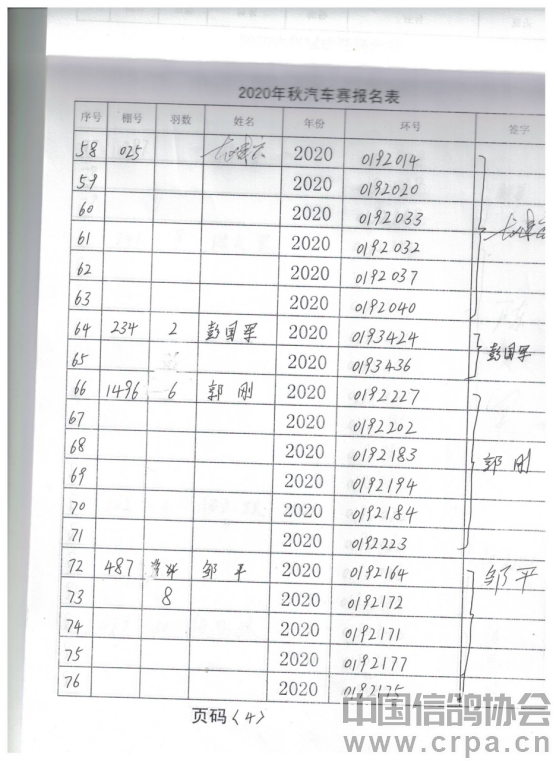 2020年秋汽车赛报名表
序号 棚号 羽数 姓名 年份 环号 签字
58 025 2020 0192014
59 2020 0192020
60 2020 0192033
61 2020 0192032
62 2020 0192037
63 2020 0192040
64 234 2 彭国军 2020 0193424 彭国军
65 2020 0193436
66 1496 6 郭刚 2020 0192227
67 2020 0192202
68 2020 0192183 郭刚
69 2020 0192194
70 2020 0192184
71 2020 0192223
72 487 邹平 2020 0192164 邹平
73 8 2020 0192172
74 2020 0192171
75 2020 0192177
76 2020 0192175
页码〈4〉
中国信鸽协会
www.crpa.cn